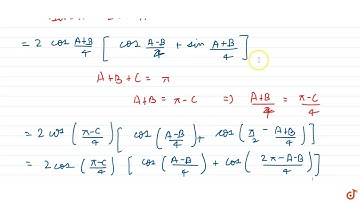 = 2 cos A+B/4 [ cos A-B/4 + sin A+B/4 ]
A+B+C = π
A+B = π-C ⇒ A+B/4 = π-C/4
= 2 cos (π-C/4) [ cos (A-B/4) + cos (π/2 - A+B/4) ]
= 2 cos (π-C/4) [ cos (A-B/4) + cos ( 2π-A-B/4 ) ]